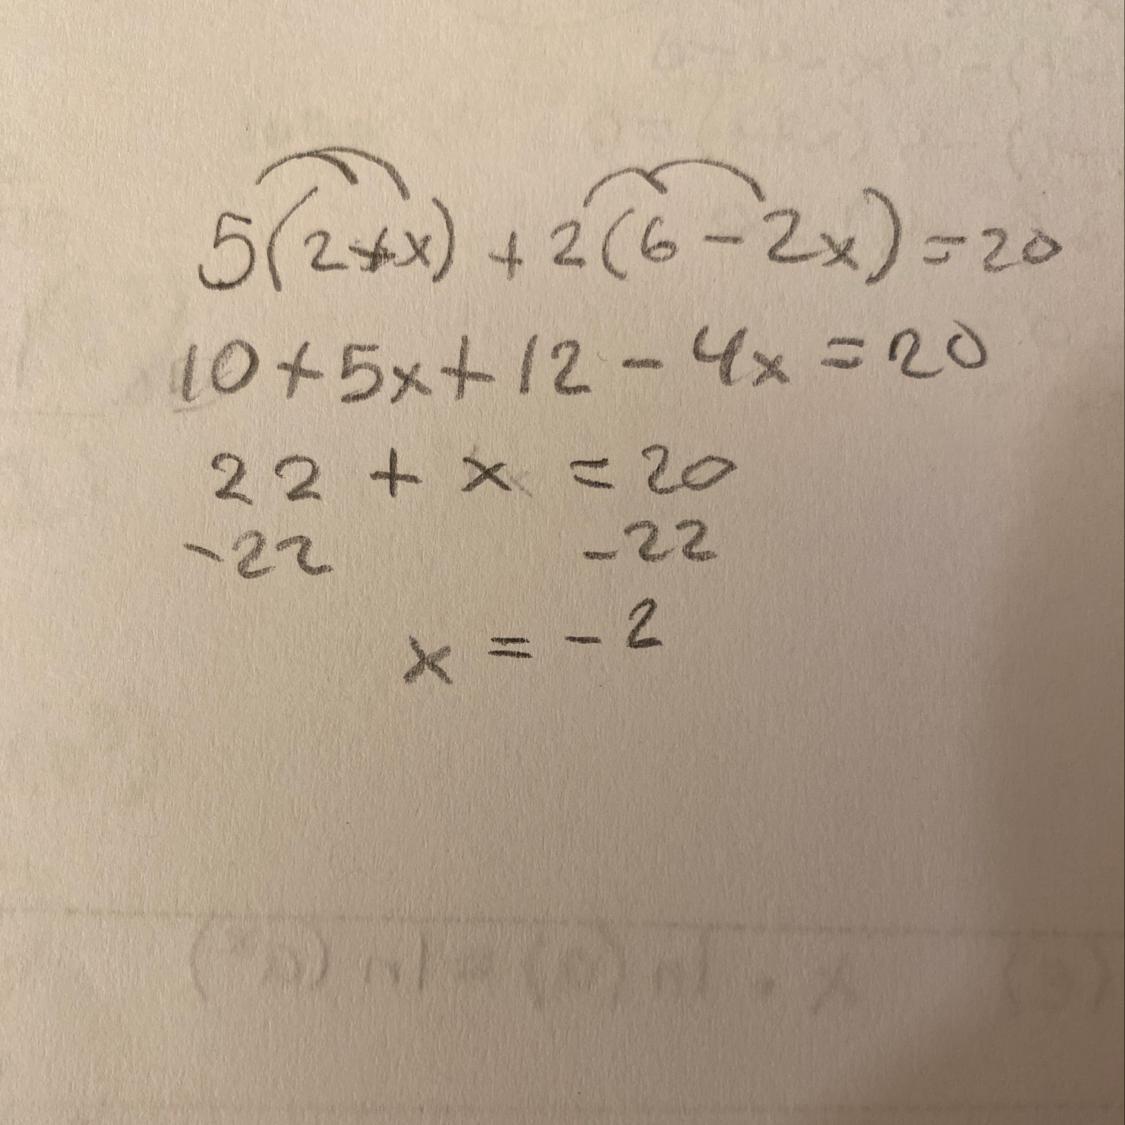 5(2+x) + 2(6 - 2x) = 20
10 + 5x + 12 - 4x = 20
22 + x = 20
-22 -22
x = - 2
x • ln(a) = ln(a^x)